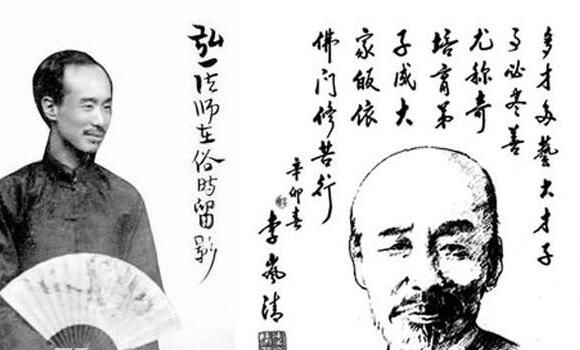 弘一法师在俗時留影
多才多藝大才子
事必尽善
尤称奇
培育弟
子成大
家皈依
佛门修苦行
辛卯春
李岚清